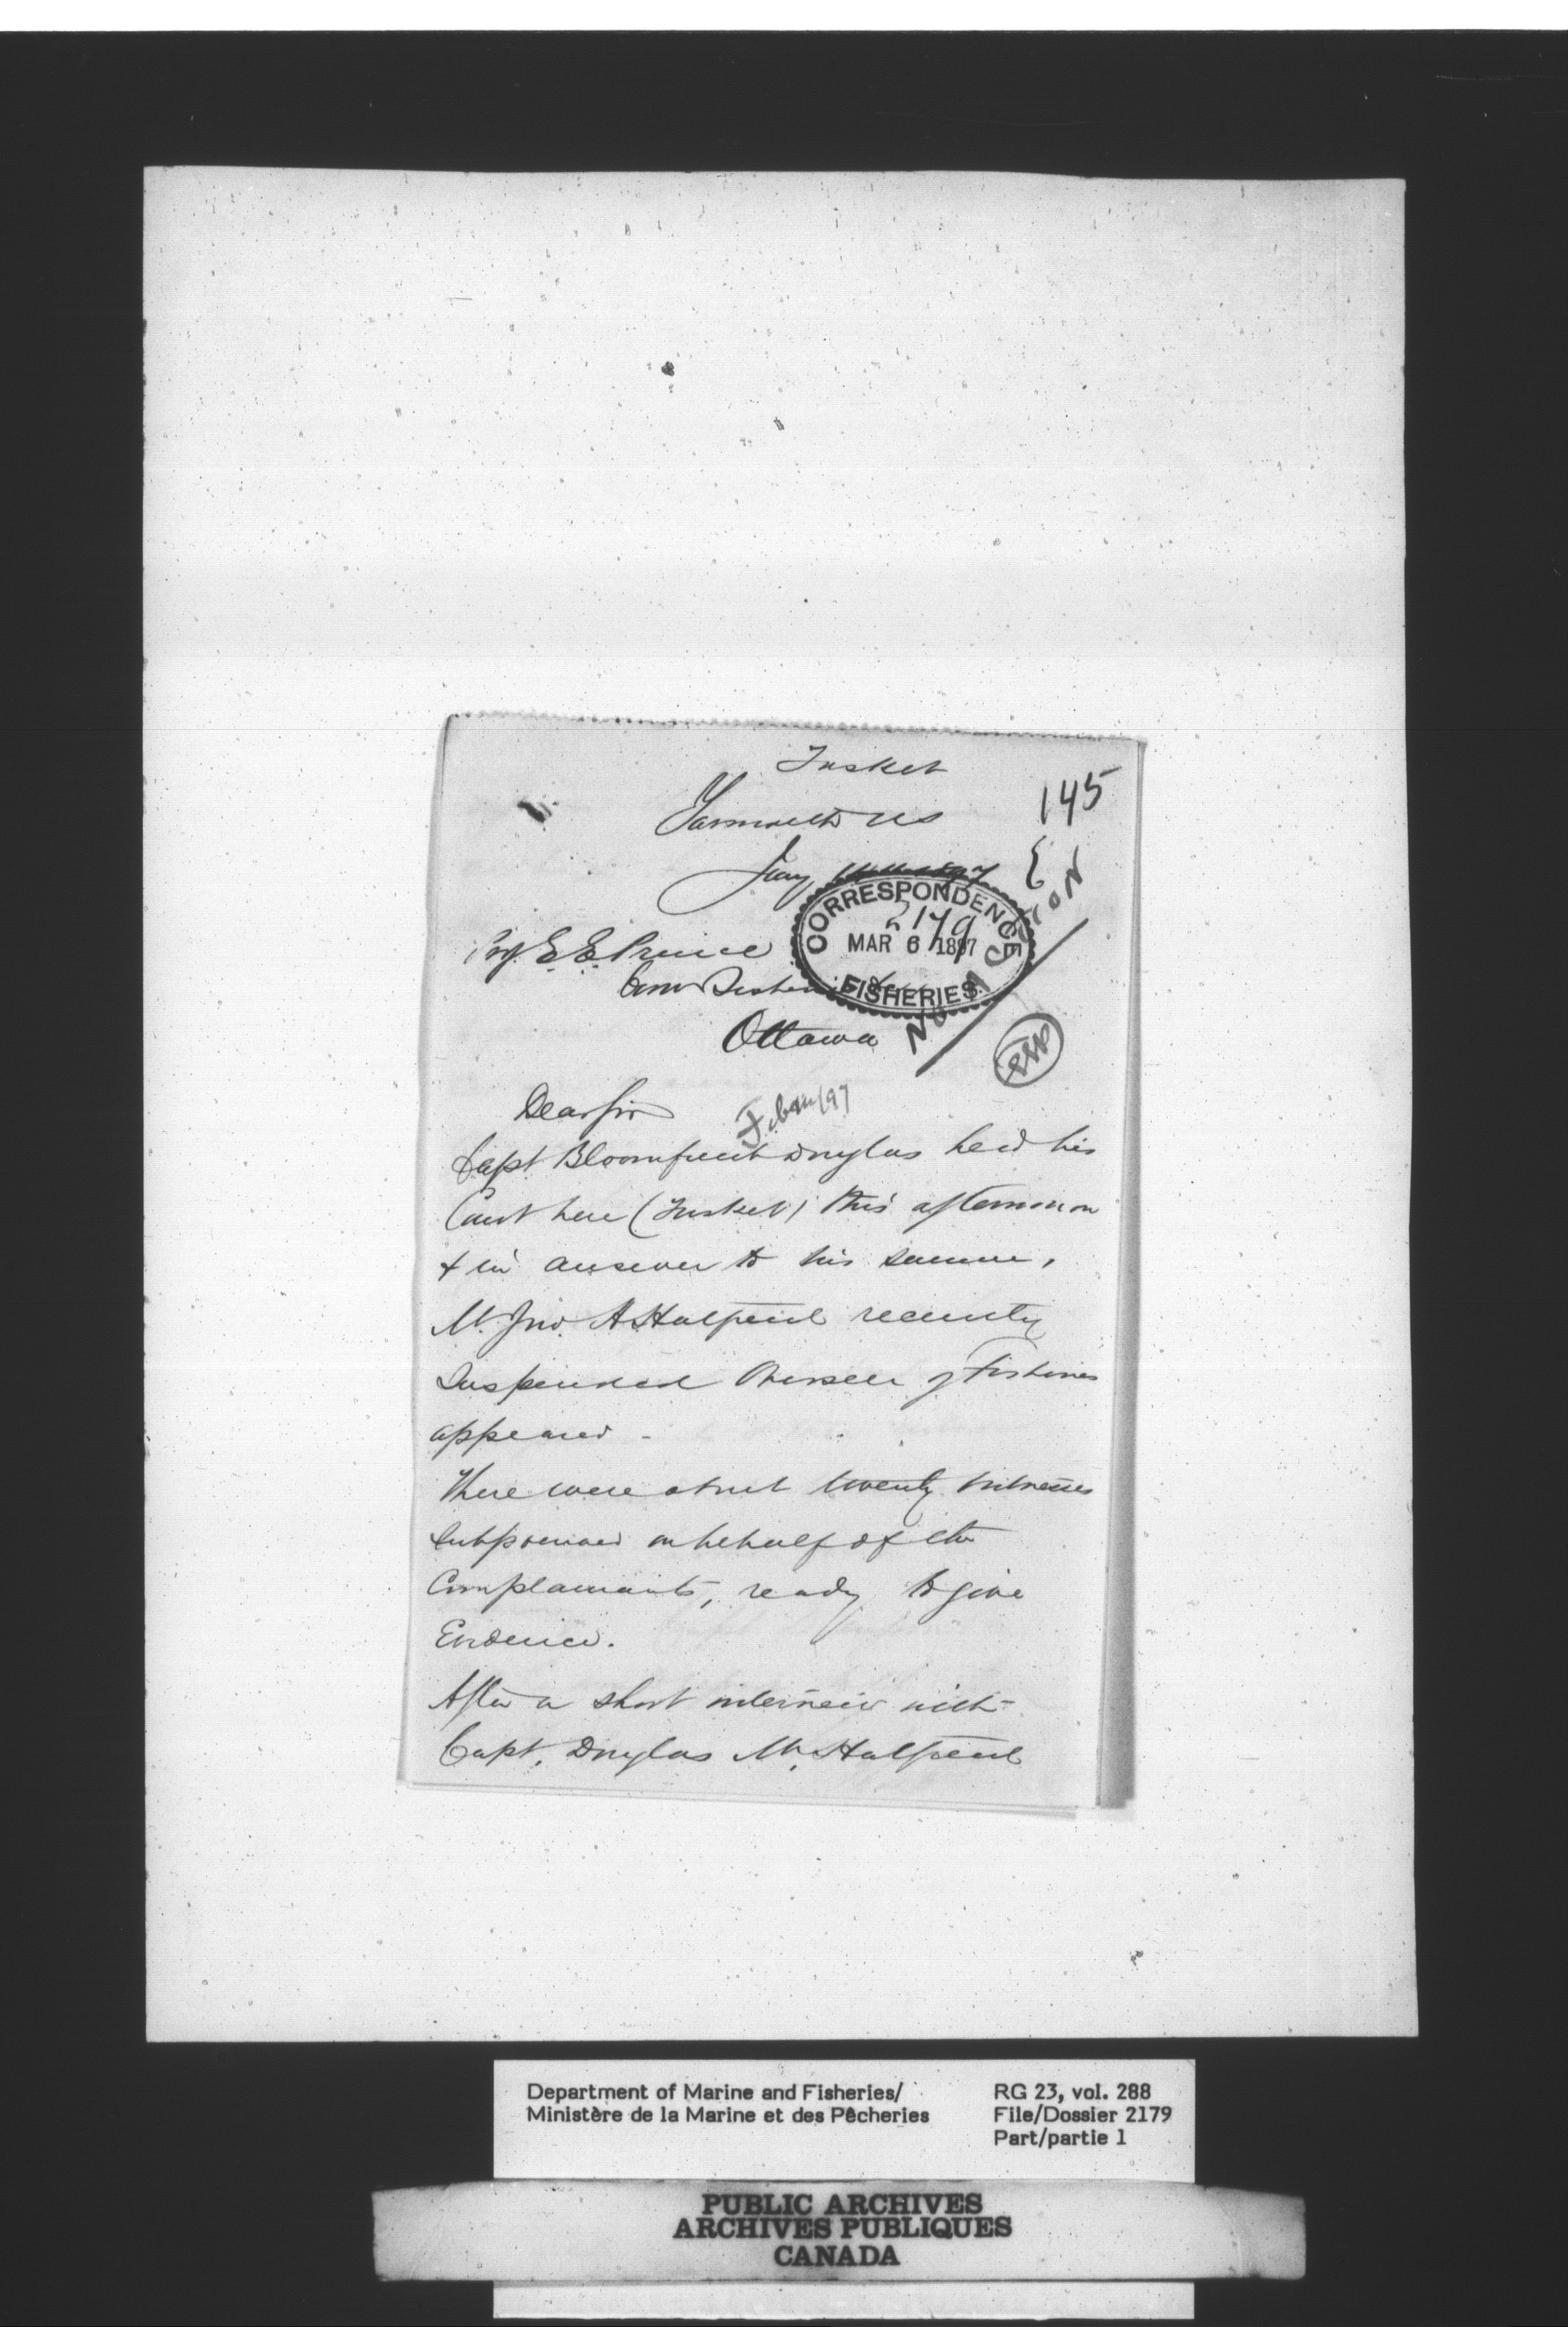 Tusket
Yarmouth NS
145
Jany 1897
CORRESPONDENCE
2179
MAR 6 1897
FISHERIES.
Prof. E. E. Prince
Com Fisheries
Ottawa
Dear Sir
Capt Bloomfield Douglas held his
Court here (Tusket) this afternoon
& in answer to his summ,
Mr. Jno. A Hatfield recently
Suspended Overseer of Fisheries
appeared -
There were about twenty witnesses
Subpoenaed on behalf of the
Complainants, ready to give
Evidence.
After a short interview with
Capt. Douglas Mr. Hatfield
Department of Marine and Fisheries/
Ministère de la Marine et des Pêcheries
RG 23, vol. 288
File/Dossier 2179
Part/partie 1
PUBLIC ARCHIVES
ARCHIVES PUBLIQUES
CANADA